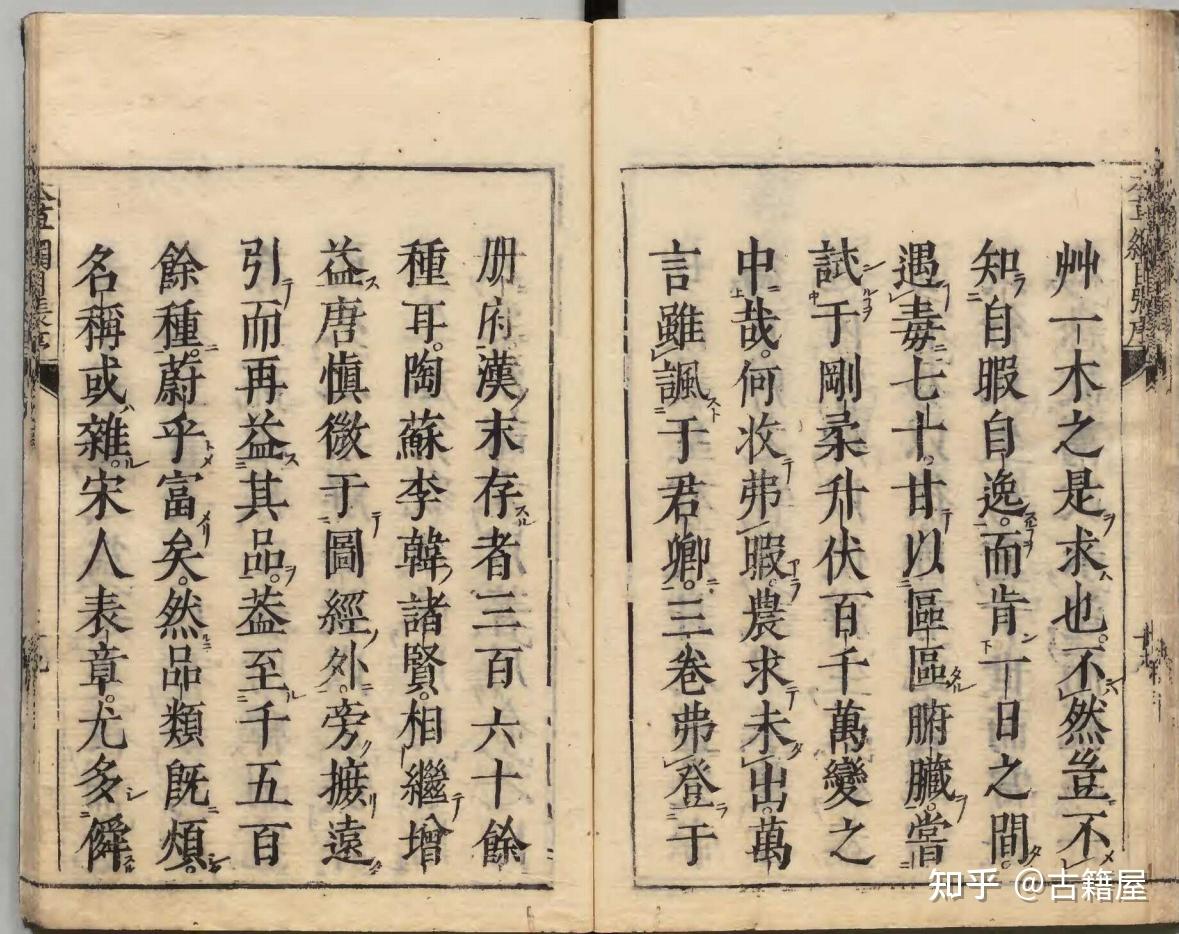 艸一木之是求也。不然豈不
知自暇自逸。而肯一日之間。
遇毒七十。甘以區區腑臟。嘗
試于剛柔升伏百千萬變之
中哉。何收弗暇。農求未出。萬
言雖諷于君卿。三卷弗登于
册府漢末存者三百六十餘
種耳。陶蘇李韓諸賢。相繼增
益唐愼微于圖經外。旁摭遠
引而再益其品。葢至千五百
餘種。蔚乎富矣。然品類旣煩。
名稱或雜。宋人表章。尤多僻
知乎 @古籍屋